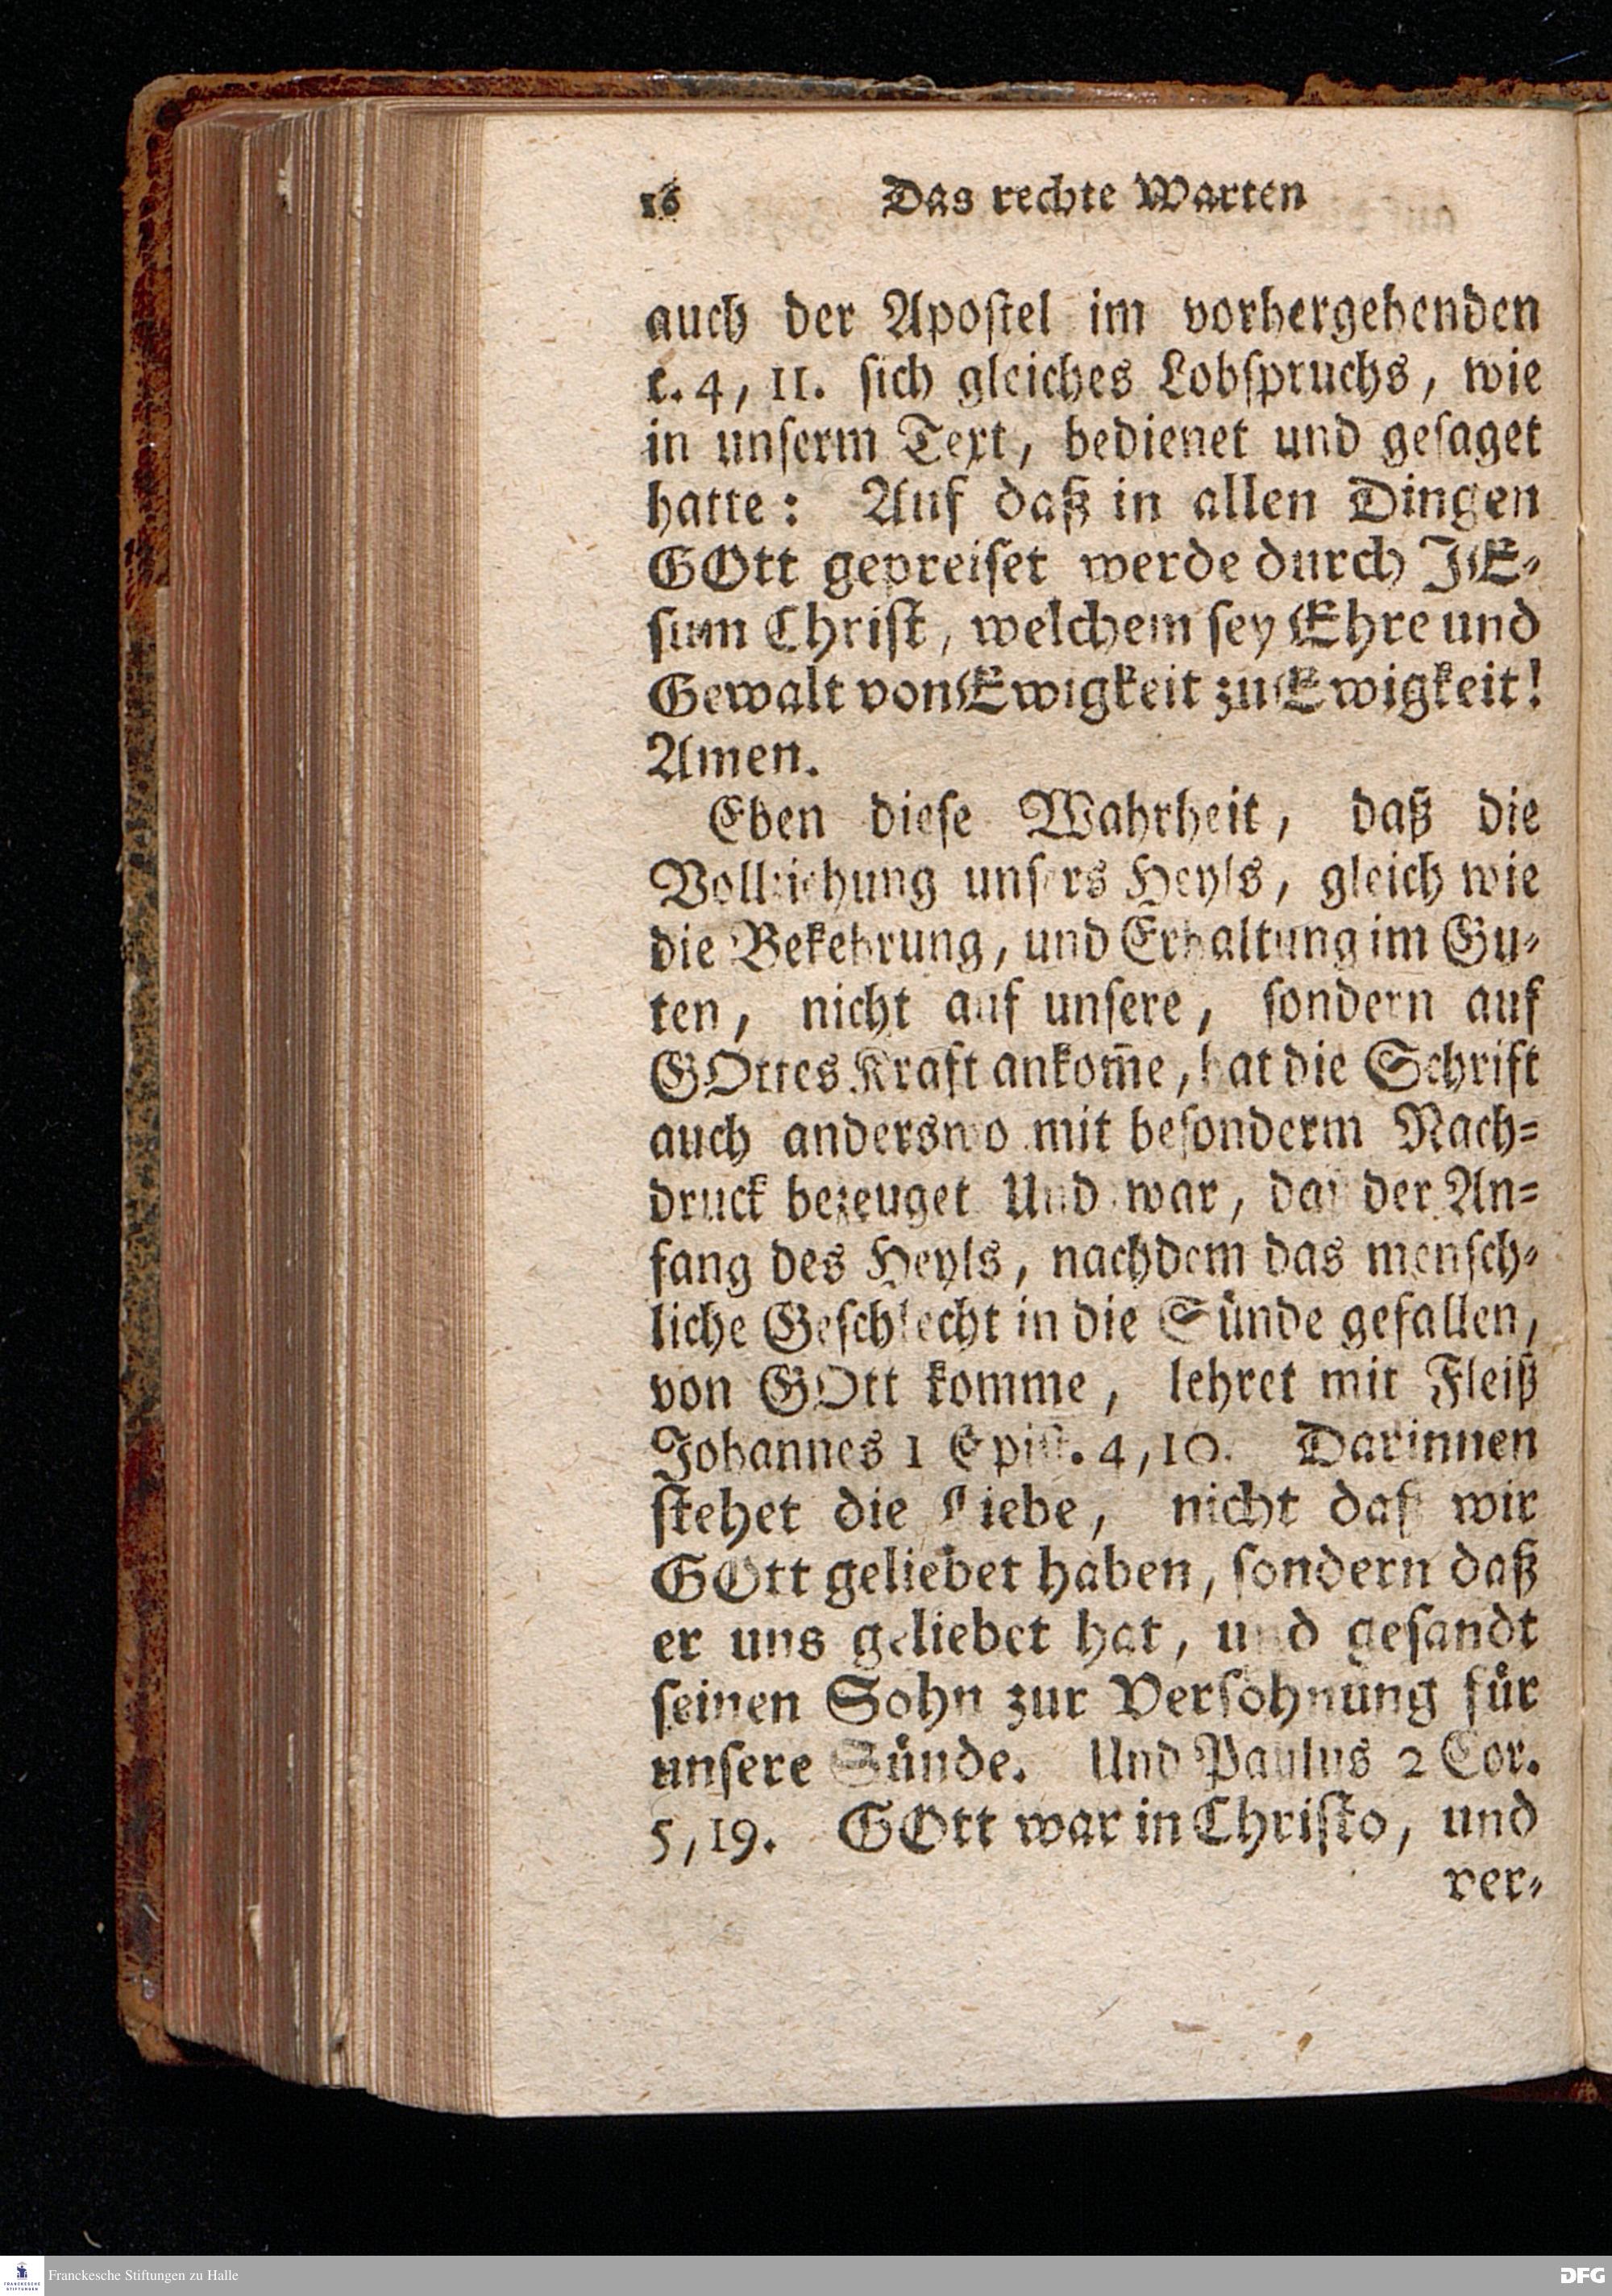 16 Das rechte Warten
auch der Apoſtel im vorhergehenden
c. 4, 11. ſich gleiches Lobſpruchs, wie
in unſerm Text, bedienet und geſaget
hatte: Auf daß in allen Dingen
GOtt gepreiſet werde durch JE-
ſum Chriſt, welchem ſey Ehre und
Gewalt von Ewigkeit zu Ewigkeit!
Amen.
Eben dieſe Wahrheit, daß die
Vollziehung unſers Heyls, gleich wie
die Bekehrung, und Erhaltung im Gu-
ten, nicht auf unſere, ſondern auf
GOttes Kraft ankom̃e, hat die Schrift
auch anderswo mit beſonderm Nach-
druck bezeuget Und war, daß der An-
fang des Heyls, nachdem das menſch-
liche Geſchlecht in die Sünde gefallen,
von GOtt komme, lehret mit Fleiß
Johannes 1 Epiſt. 4, 10. Darinnen
ſtehet die Liebe, nicht daß wir
GOtt geliebet haben, ſondern daß
er uns geliebet hat, und geſandt
ſeinen Sohn zur Verſohnung für
unſere Sünde. Und Paulus 2 Cor.
5, 19. GOtt war in Chriſto, und
ver-
Franckesche Stiftungen zu Halle
FRANCKESCHE
STIFTUNGEN
DFG